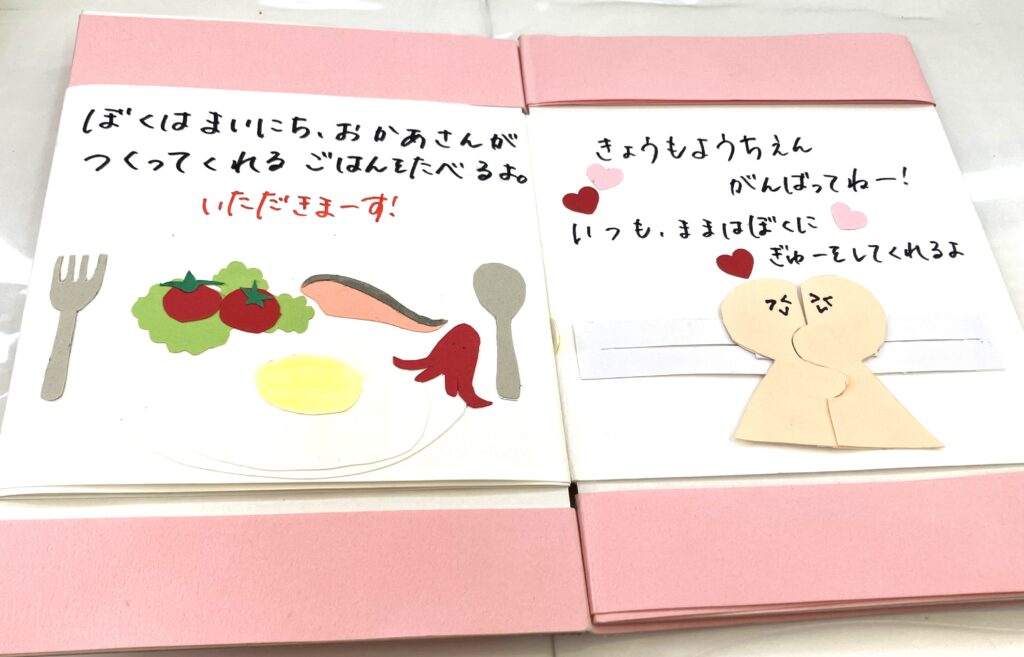 ぼくはまいにち、おかあさんが
つくってくれる ごはんをたべるよ。
いただきまーす!
きょうもようちえん
がんばってねー!
いつも、ままはぼくに
ぎゅーをしてくれるよ